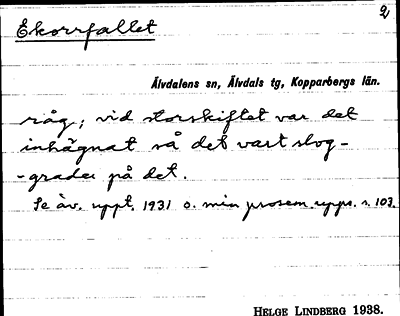 2
Ekorrfallet
Älvdalens sn, Älvdals tg, Kopparbergs län.
råg; vid storskiftet var det
inhägnat så det vart slog-
-grader på det.
Se äv. uppt. 1931 o. min prosem.upps. s. 103.
HELGE LINDBERG 1938.